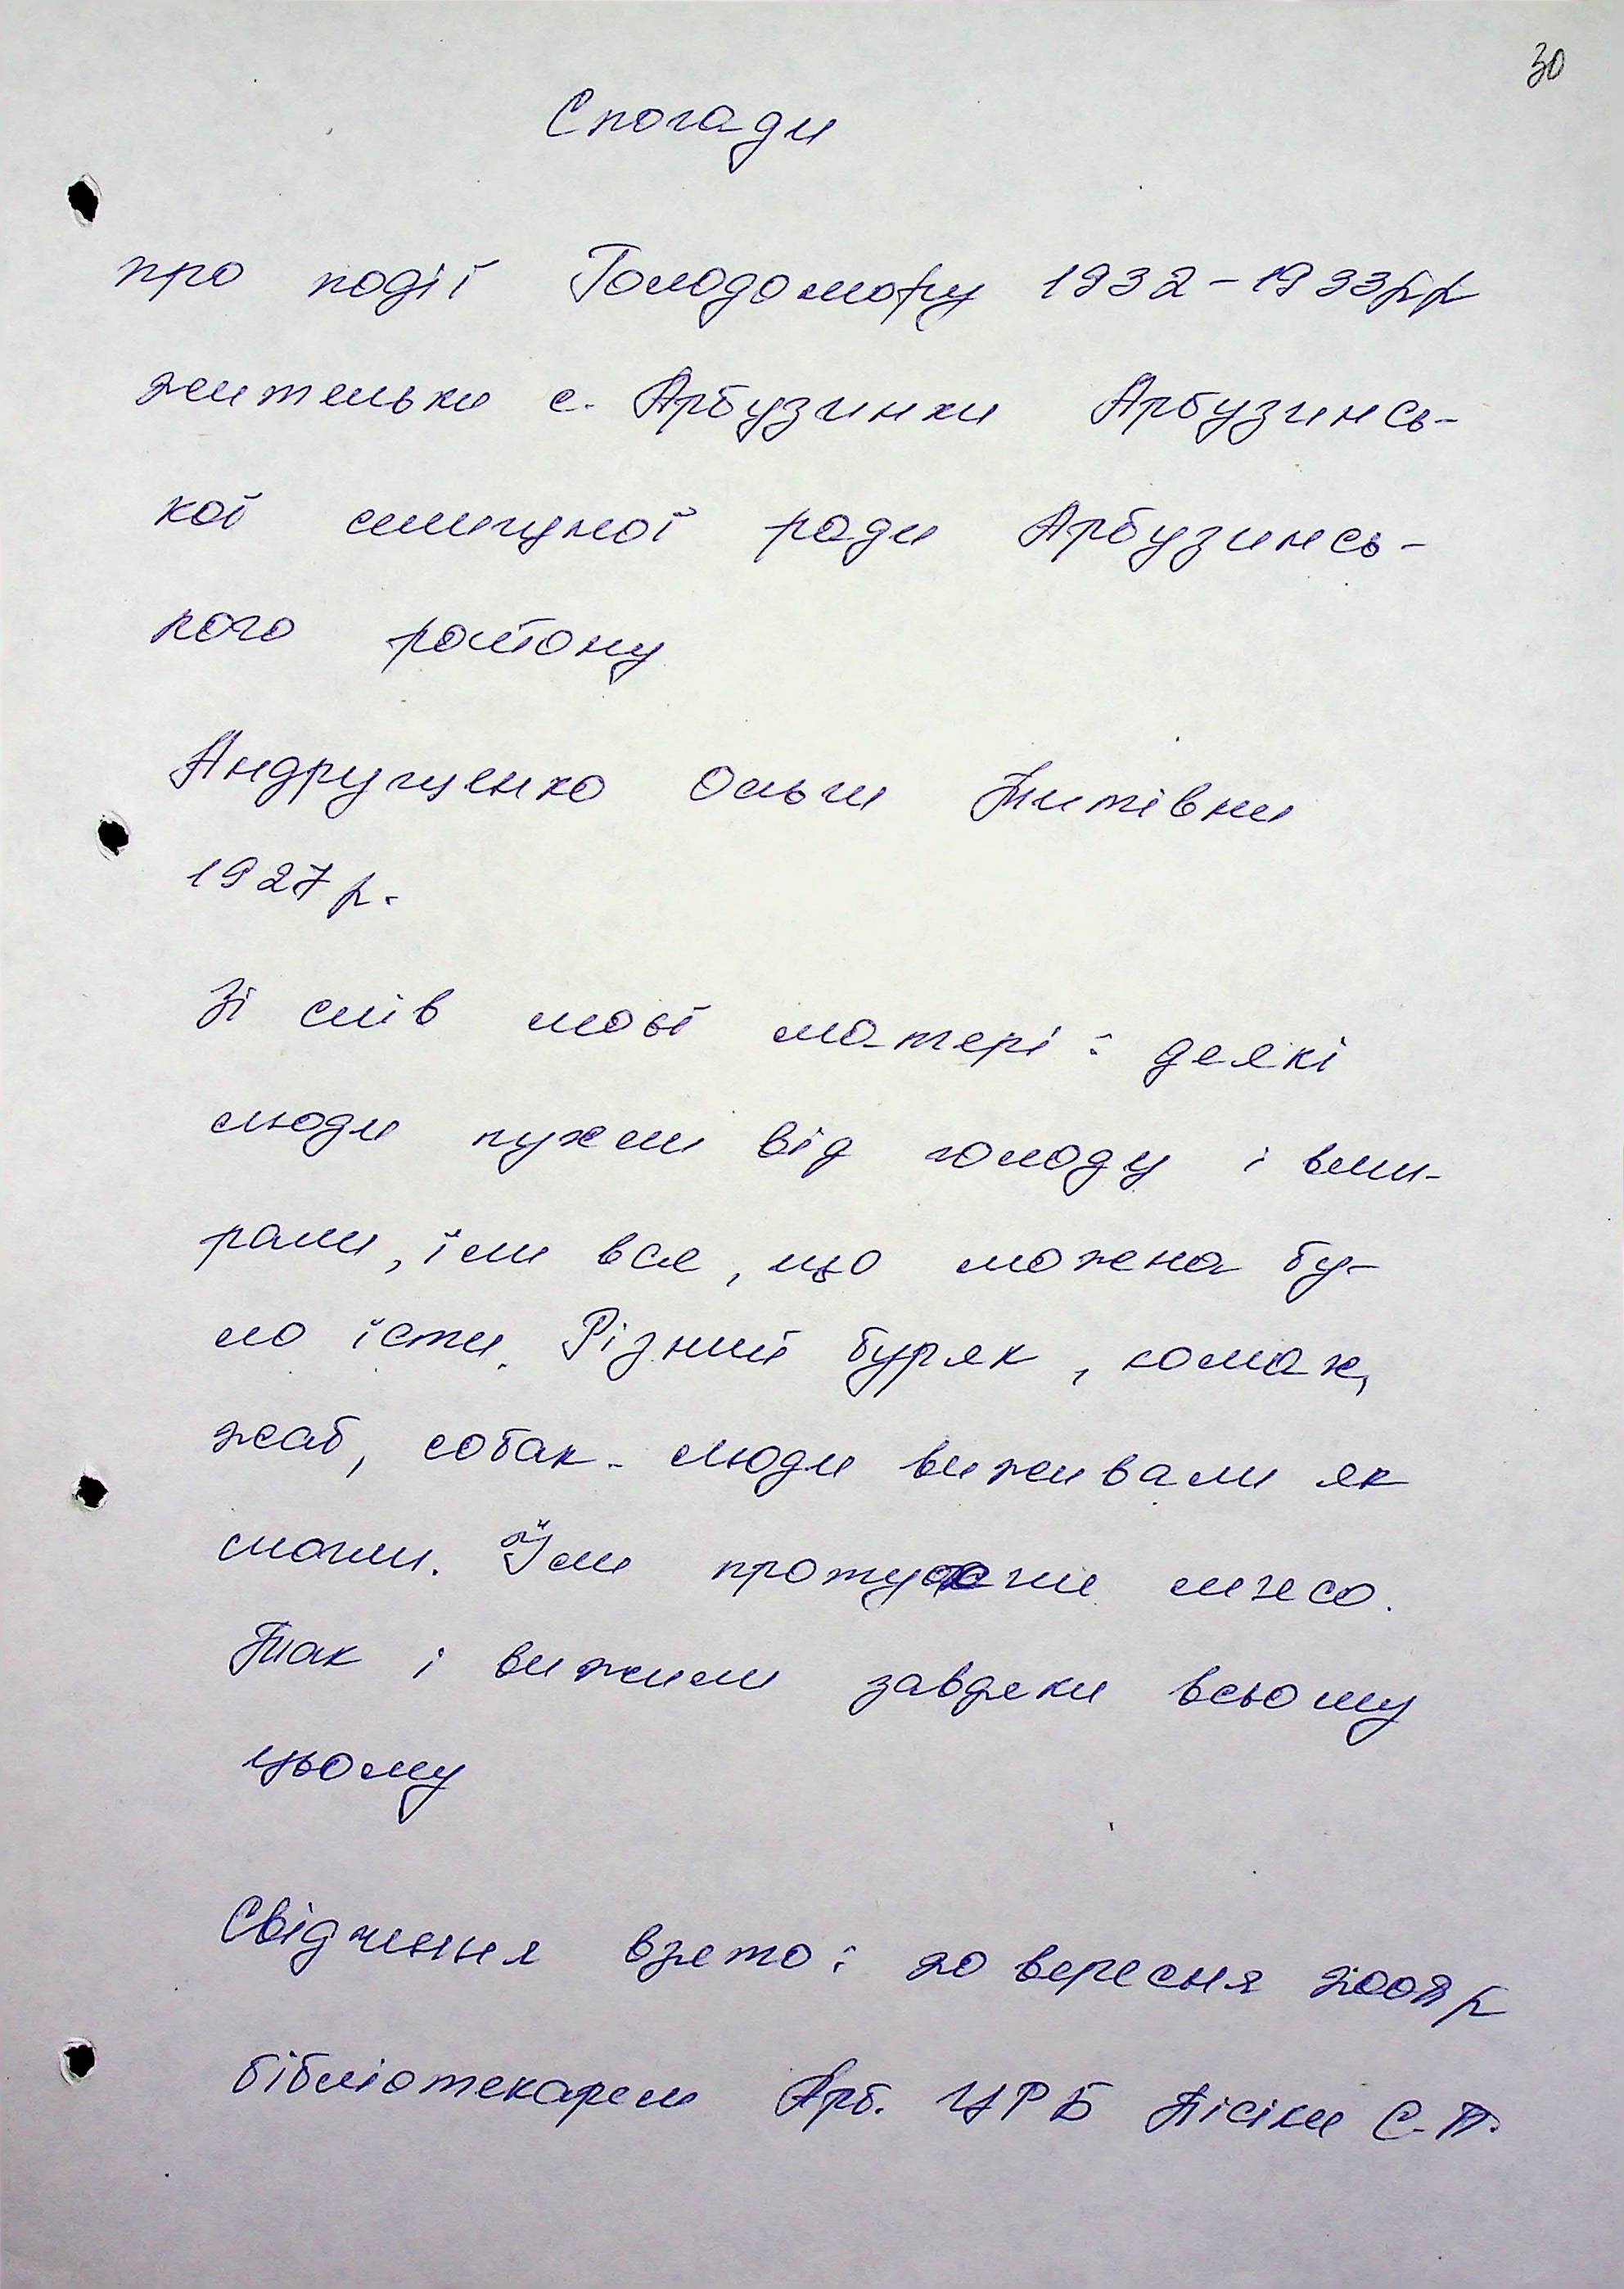 30
Спогади
про події Голодомору 1932-1933рр
жительки с. Арбузинки Арбузинсь-
кої селищної ради Арбузинсь-
кого району
Андрущенко Ольги Титівни
1927р.
Зі слів моєї матері: деякі
люди пухли від голоду і вми-
рали, їли все, що можна бу-
ло їсти. Різний буряк, комах,
жаб, собак. люди виживали як
могли. Їли протухше мясо.
Так і вижили завдяки всьому
цьому
Свідчення взято: 20 вересня 2007р
бібліотекарем Арб. ЦРБ С.П.